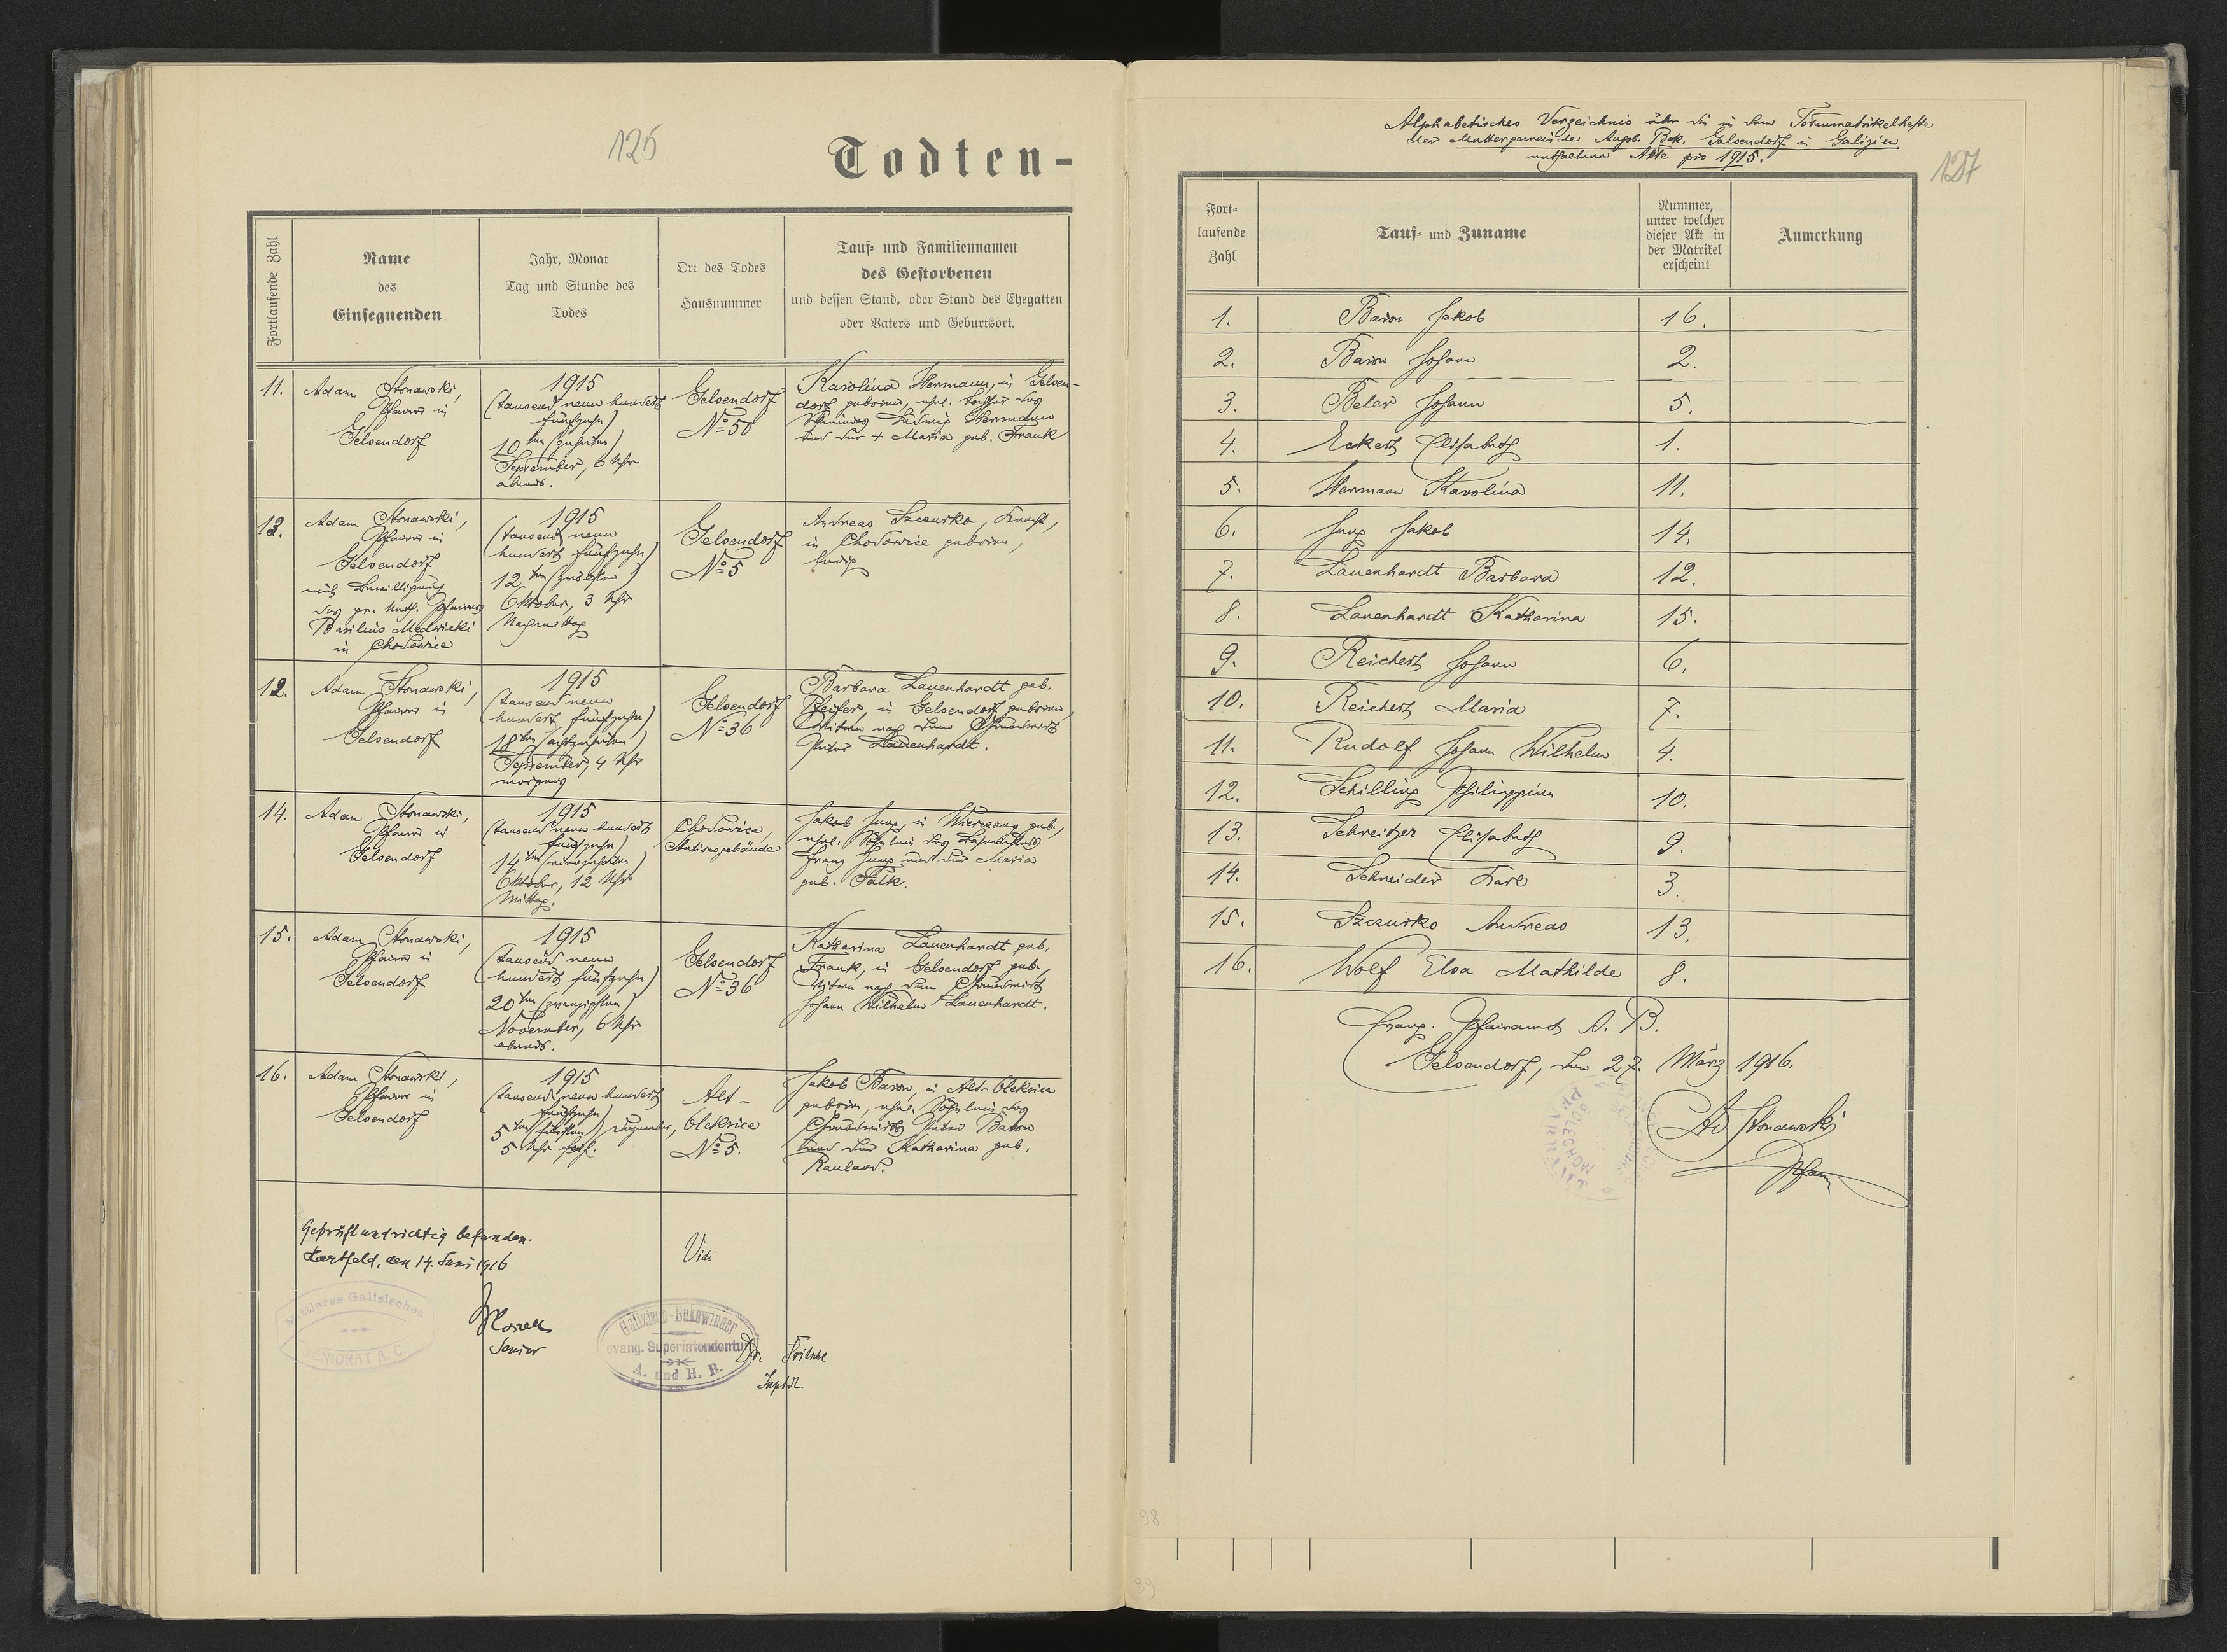 125
Todten-
Fortlaufende Zahl
Name
des
Einsegnenden
Jahr, Monat
Tag und Stunde des
Todes
Ort des Todes
Hausnummer
Tauf- und Familiennamen
des Gestorbenen
und dessen Stand, oder Stand des Ehegatten
oder Vaters und Geburtsort.
11.
Adam Stonawski,
Pfarrer in
Gelsendorf
1915
(tausend neun hundert
fünfzehn)
10ten (zehnten)
September, 6 Uhr
abends.
Gelsendorf
No 50
Karolina Hermann, in Gelsen-
dorf geboren, ehel. Tochter des
Ludwig Hermann
und der + Maria geb. Frank
13.
Adam Stonawski,
Pfarrer in
Gelsendorf
mit Bewilligung
des gr. kath. Pfarrers
Basilius Medwicki
in Chodowice
1915
(tausend neun
hundert fünfzehn)
12ten (zwölften)
Oktober, 3 Uhr
Nachmittag
Gelsendorf
No 5
Andreas Szczurko, Knecht,
in Chodowice geboren,
ledig
12.
Adam Stonawski,
Pfarrer in
Gelsendorf
1915
(tausend neun
hundert fünfzehn)
18ten (achtzehnten)
September, 4 Uhr
morgens
Gelsendorf
No 36
Barbara Lauenhardt geb.
Pfeifer, in Gelsendorf geboren,
Witwe nach dem Grundwirt
Peter Lauenhardt.
14.
Adam Stonawski,
Pfarrer in
Gelsendorf
1915
(tausend neun hundert
fünfzehn)
14ten (vierzehnten)
Oktober, 12 Uhr
Mittag.
Chodowice,
Jakob Jung, in geb.,
ehel. Söhnlein des
Franz Jung und der Maria
geb. Falk.
15.
Adam Stonawski,
Pfarrer in
Gelsendorf
1915
(tausend neun
hundert fünfzehn)
20ten (zwanzigsten)
November, 6 Uhr
abends.
Gelsendorf
No 36
Katharina Lauenhardt geb.
Frank, in Gelsendorf geb.,
Witwe nach dem Grundwirt
Johann Wilhelm Lauenhardt.
16.
Adam Stonawski,
Pfarrer in
Gelsendorf
1915
(tausend neun hundert
fünfzehn)
5ten (fünften) Dezember,
5 Uhr früh.
Alt-
Oleksice
No 5.
Jakob Baron, in Alt-Oleksice
geboren, ehel. Söhnlein des
Grundwirts Peter Baron
und der Katharina geb.
Rauland.
Geprüft und richtig befunden.
Hartfeld, den 14. Juni 1916
Mittleres Galizisches
SENIORAT A. C.
Senior
Vidi
Galizien-Bukowinaer
evang. Superintendentur
A. und H. B.
Dr. Fritsche
Suptdt
Alphabetisches Verzeichnis über die in dem Totenmatrikelhefte
der Muttergemeinde Augsb. Bek. Gelsendorf in Galizien
enthaltenen Akte pro 1915.
127
Fort-
laufende
Zahl
Tauf- und Zuname
Nummer,
unter welcher
dieser Akt in
der Matrikel
erscheint
Anmerkung
1. Baron Jakob 16.
2. Baron Johann 2.
3. Beler Johann 5.
4. Eckert Elisabeth 1.
5. Hermann Karolina 11.
6. Jung Jakob 14.
7. Lauenhardt Barbara 12.
8. Lauenhardt Katharina 15.
9. Reichert Johann 6.
10. Reichert Maria 7.
11. Rudolf Johann Wilhelm 4.
12. Schilling Philippina 10.
13. Schreitzer Elisabeth 9.
14. Schneider Karl 3.
15. Szczurko Andreas 13.
16. Wolf Elsa Mathilde 8.
Evang. Pfarramt A. B.
Gelsendorf, den 27. März 1916.
Ad Stonawski
Pfarrer
98
99